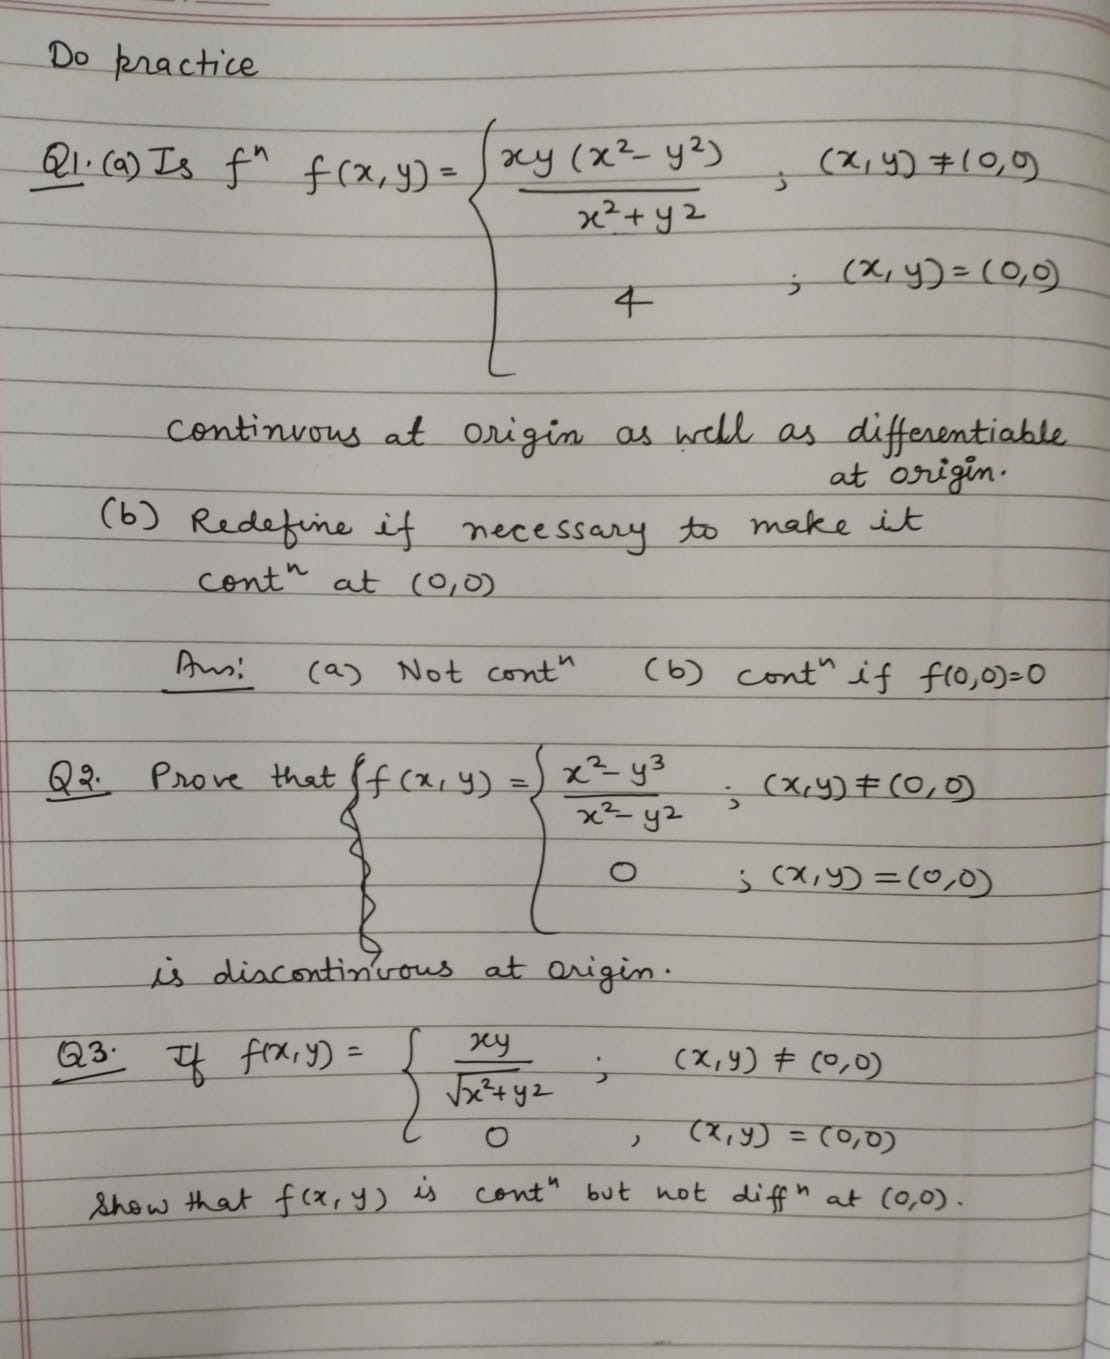 Do practice
Q1. (a) Is fⁿ f(x,y) = { xy (x² - y²) / x² + y² ; (x,y) ≠ (0,0)
4 ; (x,y) = (0,0)
continuous at origin as well as differentiable
at origin.
(b) Redefine if necessary to make it
contⁿ at (0,0)
Ans: (a) Not contⁿ (b) contⁿ if f(0,0)=0
Q2. Prove that f(x,y) = { x² - y³ / x² - y² ; (x,y) ≠ (0,0)
0 ; (x,y) = (0,0)
is discontinuous at origin.
Q3. If f(x,y) = { xy / √x² + y² ; (x,y) ≠ (0,0)
0 , (x,y) = (0,0)
Show that f(x,y) is contⁿ but not diffⁿ at (0,0).